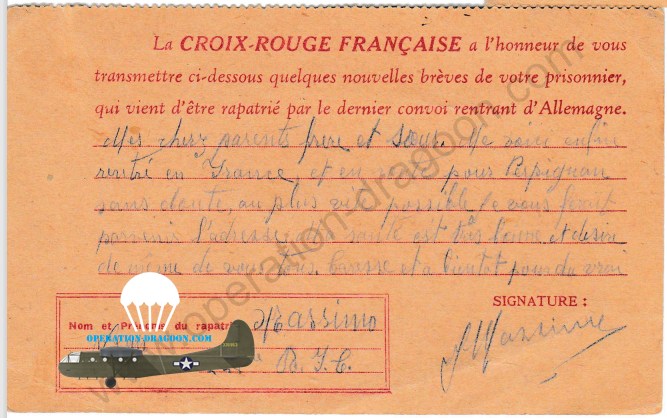 La CROIX-ROUGE FRANÇAISE a l'honneur de vous
transmettre ci-dessous quelques nouvelles brèves de votre prisonnier,
qui vient d'être rapatrié par le dernier convoi rentrant d'Allemagne.
Mes chers parents frère et sœur. Me voici enfin
rentré en France, et en pour Perpignan
sans doute, au plus vite possible je vous ferait
parvenir l'adresse. santé est très bonne et désire
de même de vous tous, baisse et a bientôt pour du vrai
SIGNATURE :
Nom et Prénoms du rapatr
Massimo
OPERATION-DRAGOON.COM
www.operation-dragoon.com